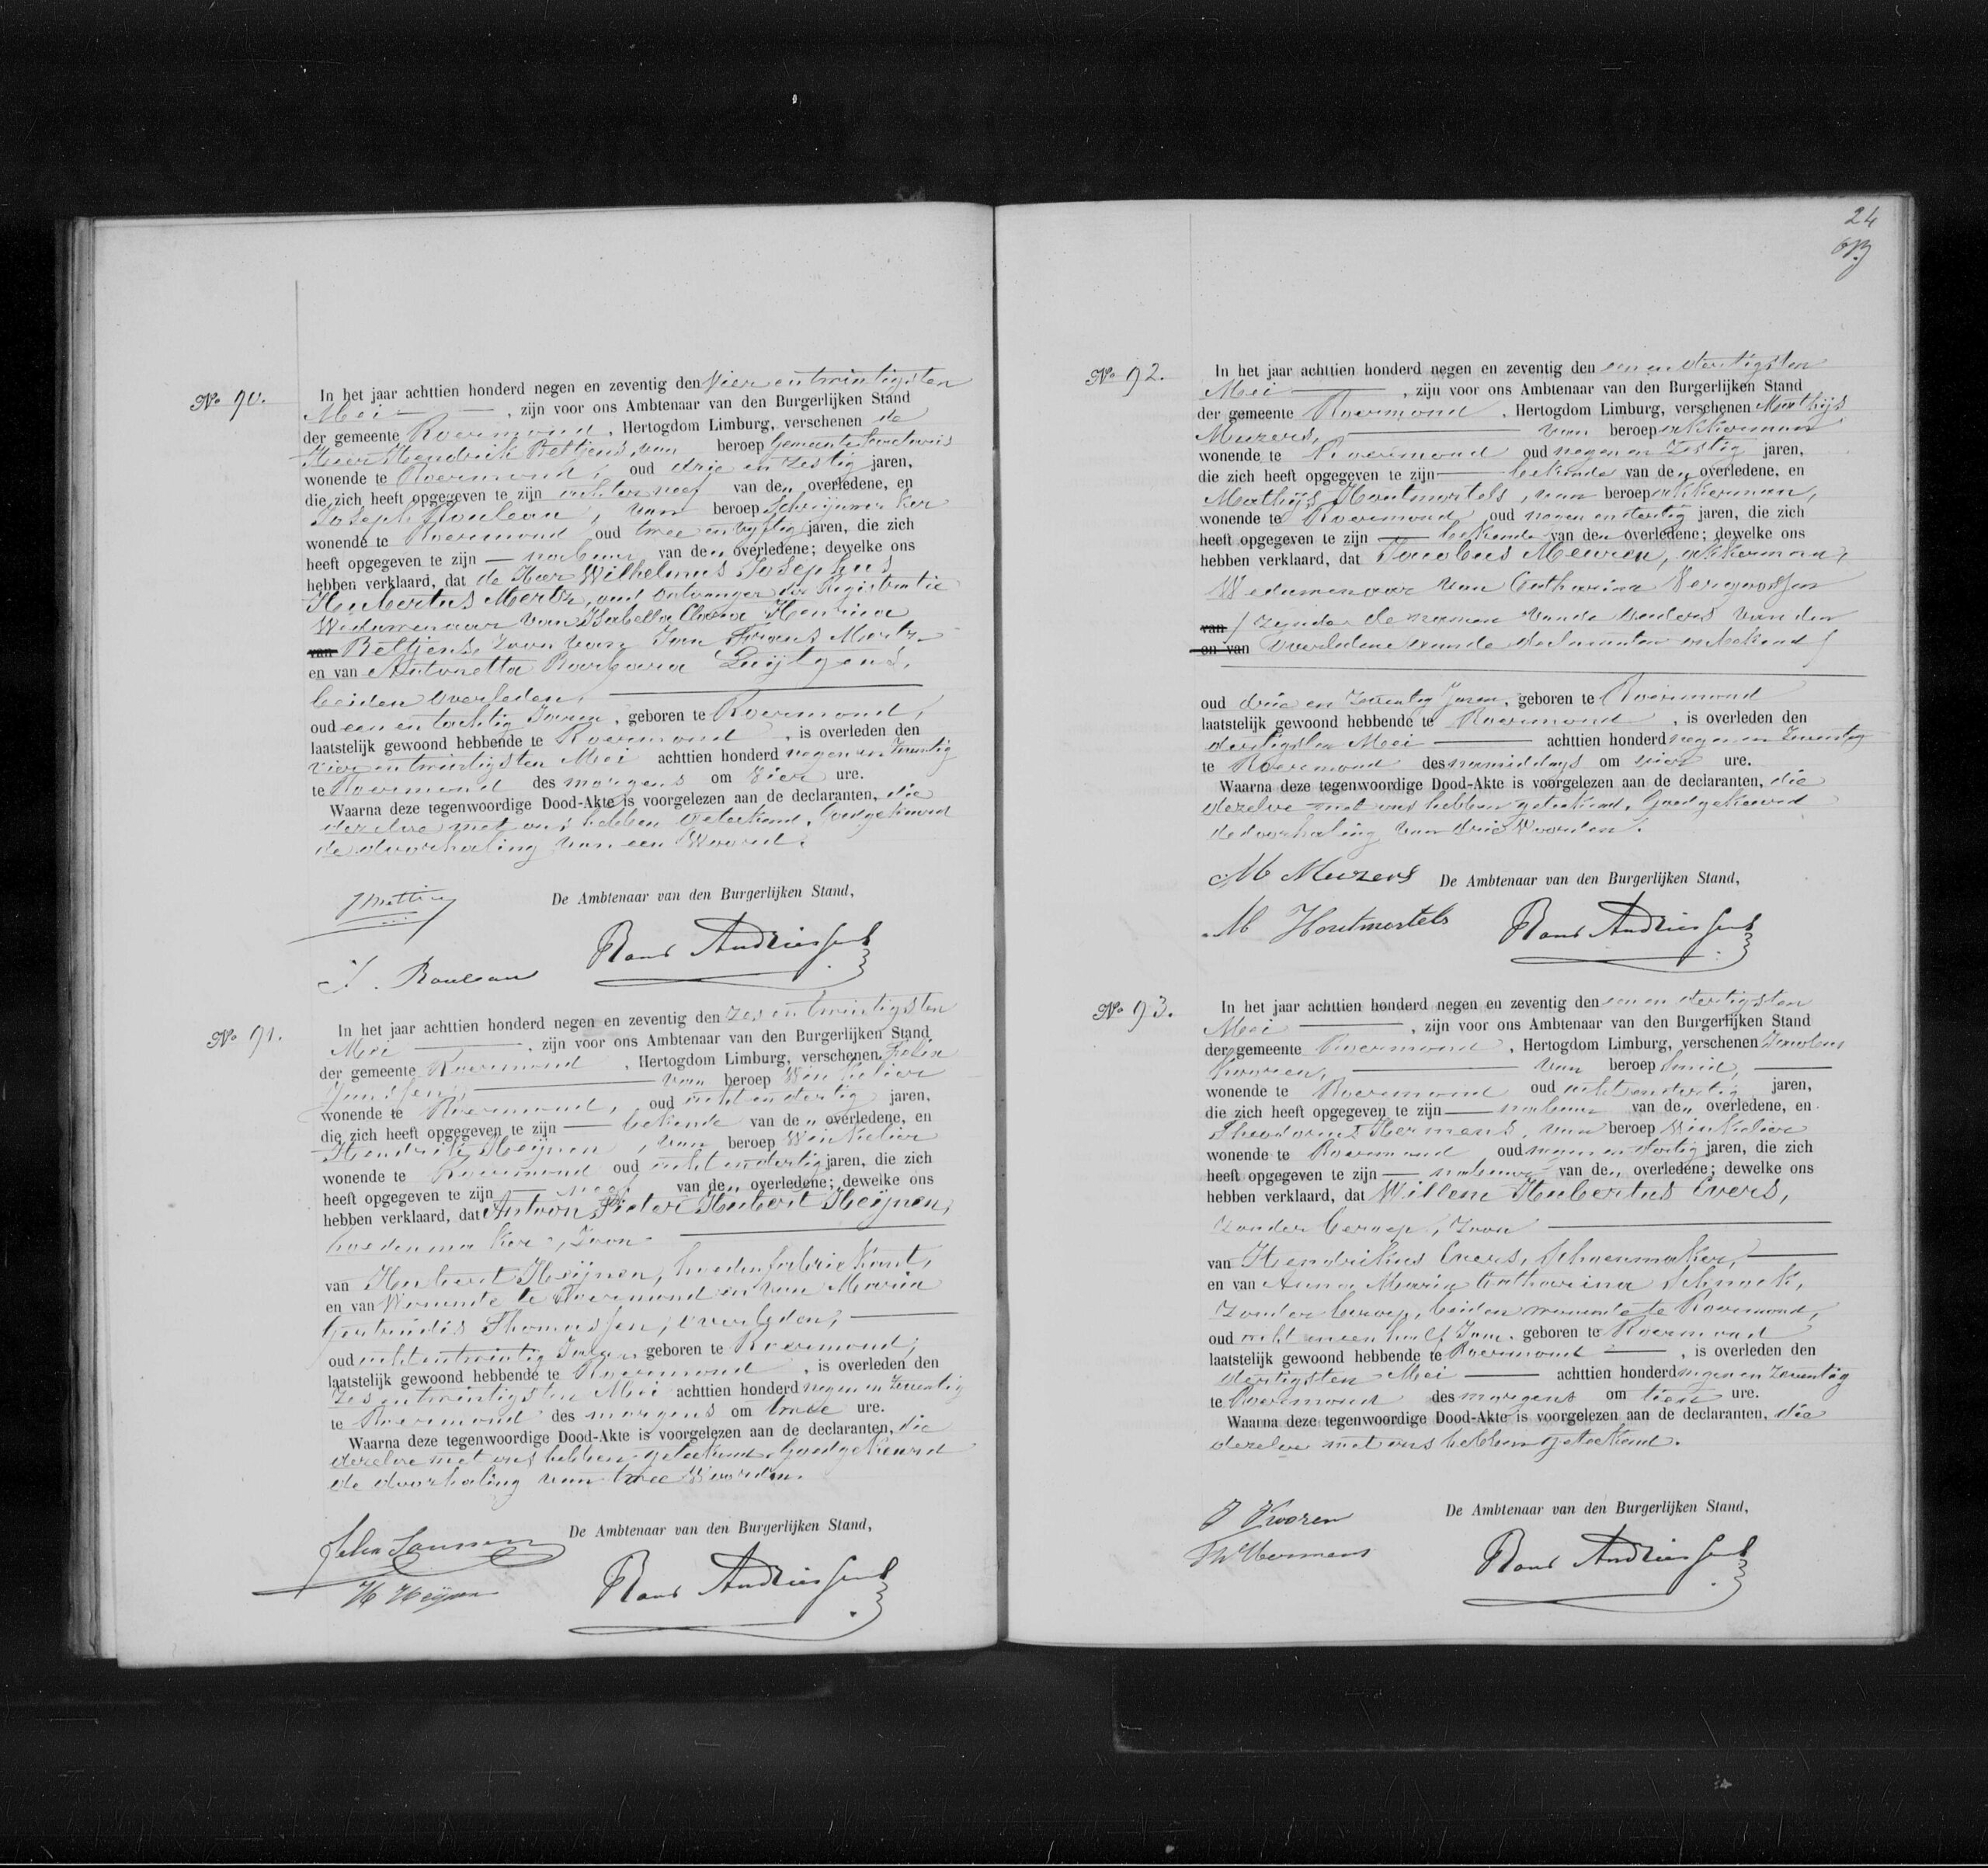 No 90.
In het jaar achttien honderd negen en zeventig den Vier en twintigsten
Mei , zijn voor ons Ambtenaar van den Burgerlijken Stand
der gemeente Roermond , Hertogdom Limburg, verschenen de
Heer Hendrik Beltjens, van beroep Gemeente
wonende te Roermond, oud drie en zestig jaren,
die zich heeft opgegeven te zijn achter neef van den overledene, en
Joseph Rouleau, van beroep Schrijnwerker
wonende te Roermond oud twee en vyftig jaren, die zich
heeft opgegeven te zijn nabuur van den overledene; dewelke ons
hebben verklaard, dat de Heer Wilhelmus Josephus
Hubertus Mertz, oud Ontvanger der Registratie
Weduwenaar van Isabella Clara Henrina
van Beltjens, Zoon van Jan Frans Mertz
en van Antonetta Barbara
beiden overleden,
oud een en tachtig Jaren, geboren te Roermond,
laatstelijk gewoond hebbende te Roermond , is overleden den
vier en twintigsten Mei achttien honderd negen en zeventig
te Roermond des morgens om Vier ure.
Waarna deze tegenwoordige Dood-Akte is voorgelezen aan de declaranten, die
dezelve met ons hebben geteekend, Goedgekeurd
de doorhaling van een Woord.
De Ambtenaar van den Burgerlijken Stand,
J. Rouleau
No 91.
In het jaar achttien honderd negen en zeventig den zes en twintigsten
Mei , zijn voor ons Ambtenaar van den Burgerlijken Stand
der gemeente Roermond , Hertogdom Limburg, verschenen Felix
Janssen, van beroep Winkelier
wonende te Roermond, oud acht en dertig jaren,
die zich heeft opgegeven te zijn bekende van den overledene, en
Hendrik Heijnen, van beroep Winkelier
wonende te Roermond oud acht en dertig jaren, die zich
heeft opgegeven te zijn neef van den overledene; dewelke ons
hebben verklaard, dat Antoon Pieter Hubert Heijnen,
hoedenmaker, Zoon
van Hubert Heijnen, hoedenfabriekant,
en van Wonende te Roermond en van Maria
Gertrudis Thomassen, overleden,
oud acht en twintig Jaren, geboren te Roermond,
laatstelijk gewoond hebbende te Roermond , is overleden den
zes en twintigsten Mei achttien honderd negen en zeventig
te Roermond des morgens om twee ure.
Waarna deze tegenwoordige Dood-Akte is voorgelezen aan de declaranten, die
dezelve met ons hebben geteekend. Goedgekeurd
de doorhaling van twee Woorden.
De Ambtenaar van den Burgerlijken Stand,
Felix Janssen
H Heijnen
24
No 92.
In het jaar achttien honderd negen en zeventig den een en dertigsten
Mei , zijn voor ons Ambtenaar van den Burgerlijken Stand
der gemeente Roermond , Hertogdom Limburg, verschenen Mathijs
Meuzers, van beroep akkerman
wonende te Roermond oud negen en zestig jaren,
die zich heeft opgegeven te zijn bekende van den overledene, en
Mathijs Houtmortels, van beroep akkerman,
wonende te Roermond oud negen en dertig jaren, die zich
heeft opgegeven te zijn bekende van den overledene; dewelke ons
hebben verklaard, dat Jacobus Meuren, akkerman,
Weduwenaar van Catharina Vergoossen
van / zynde de namen van de ouders van den
en van overledene aan de declaranten onbekend /
oud drie en zeventig Jaren, geboren te Roermond
laatstelijk gewoond hebbende te Roermond , is overleden den
dertigsten Mei achttien honderd negen en zeventig
te Roermond des namiddags om vier ure.
Waarna deze tegenwoordige Dood-Akte is voorgelezen aan de declaranten, die
dezelve met ons hebben geteekend. Goedgekeurd
de doorhaling van drie Woorden.
M Meuzers De Ambtenaar van den Burgerlijken Stand,
M Houtmortels
No 93.
In het jaar achttien honderd negen en zeventig den een en dertigsten
Mei , zijn voor ons Ambtenaar van den Burgerlijken Stand
der gemeente Roermond , Hertogdom Limburg, verschenen Jacobus
van beroep Smid,
wonende te Roermond oud acht en dertig jaren,
die zich heeft opgegeven te zijn nabuur van den overledene, en
Theodorus Hermans, van beroep Winkelier
wonende te Roermond oud negen en dertig jaren, die zich
heeft opgegeven te zijn nabuur van den overledene; dewelke ons
hebben verklaard, dat Willem Hubertus Evers,
zonder beroep, Zoon
van Hendrikus Evers, Schoenmaker,
en van Anna Maria Catharina Schnock,
zonder beroep, beiden wonende te Roermond,
oud acht en een half Jaar, geboren te Roermond
laatstelijk gewoond hebbende te Roermond , is overleden den
dertigsten Mei achttien honderd negen en zeventig
te Roermond des morgens om tien ure.
Waarna deze tegenwoordige Dood-Akte is voorgelezen aan de declaranten, die
dezelve met ons hebben geteekend.
De Ambtenaar van den Burgerlijken Stand,
Th Hermans